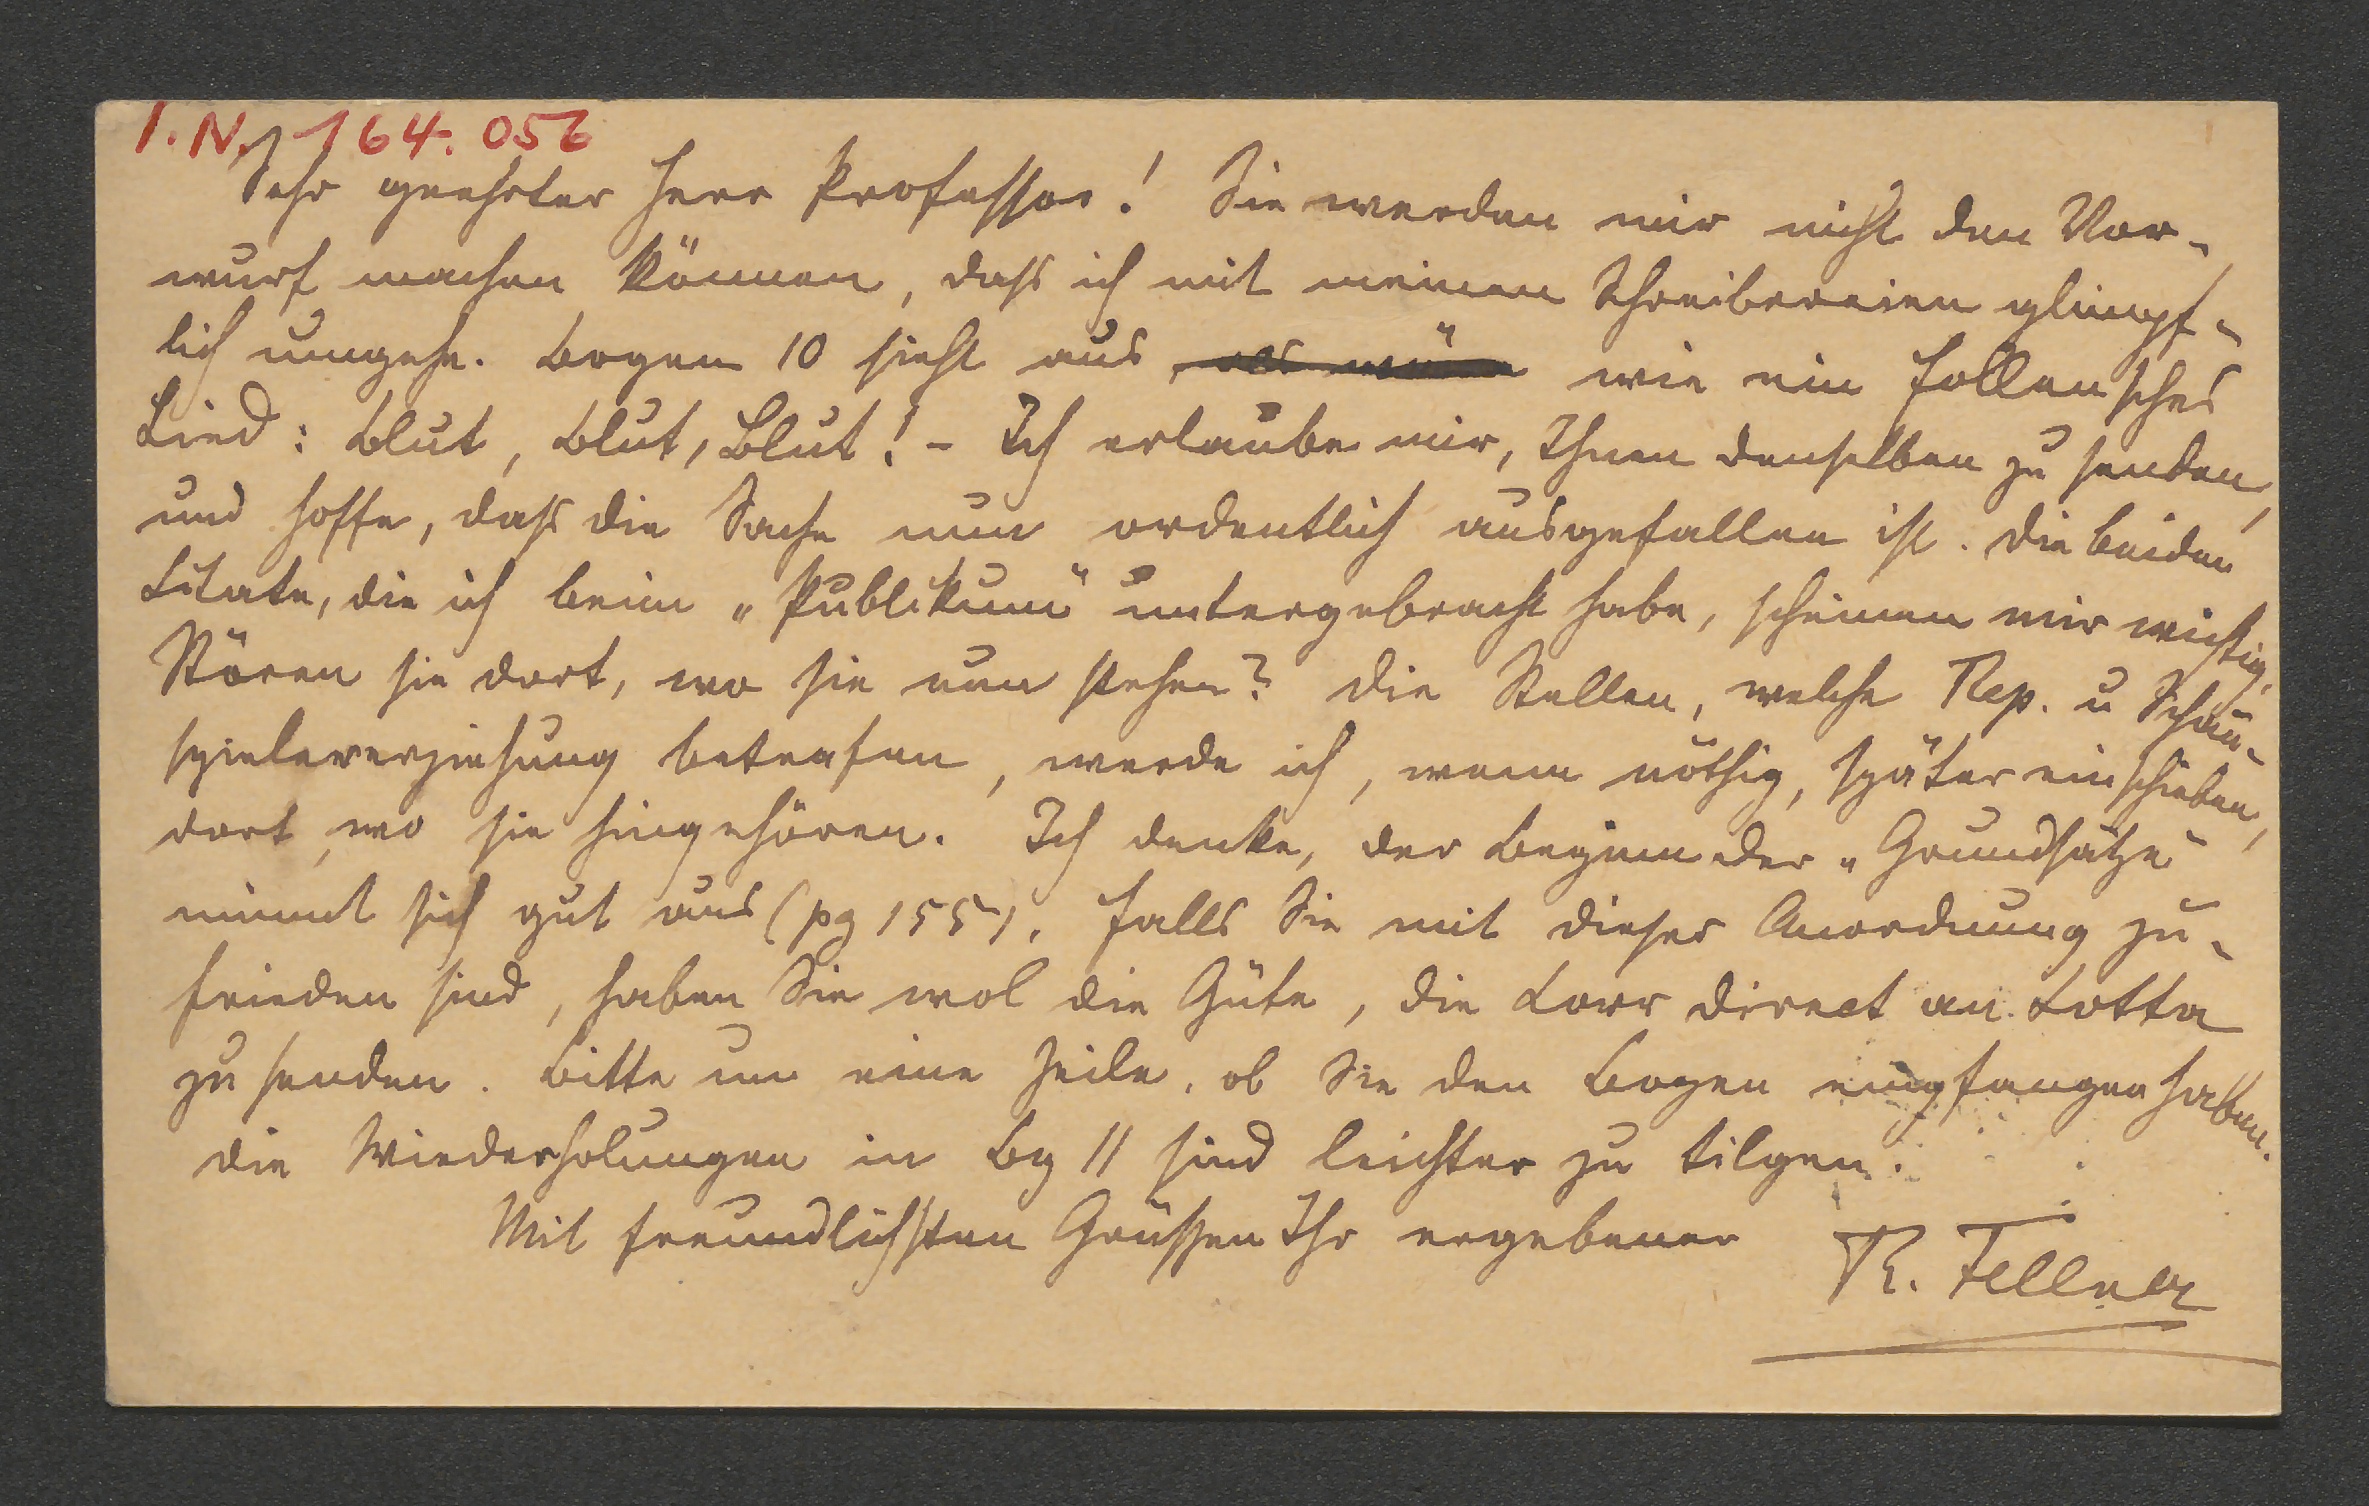 I.N. 164.056
Sehr geehrter Herr Professor! Sie werden mir nicht den Vor-
wurf machen können, dass ich mit meinen Schreibereien glimpf-
lich umgehe. Bogen 10 sieht aus, wie ein Follensches
Lied: Blut, Blut, Blut! – Ich erlaube mir, Ihnen denselben zu senden,
und hoffe, dass die Sache nun ordentlich ausgefallen ist. Die beiden
Citate, die ich beim „Publikum“ untergebracht habe, scheinen mir wichtig.
Stören sie dort, wo sie nun stehen? Die Stellen, welche Rep. u Schau-
spielererziehung betrafen, werde ich, wenn nöthig, später einschieben,
dort, wo sie hingehören. Ich denke, der Beginn der „Grundsätze“
nimmt sich gut aus (pg 155). Falls Sie mit dieser Anordnung zu-
frieden sind, haben Sie wol die Güte, die Corr direct an Cotta
zu senden. Bitte um eine Zeile, ob Sie den Bogen empfangen haben.
Die Wiederholungen in Bg 11 sind leichter zu tilgen.
Mit freundlichsten Grüssen Ihr ergebener
R. Fellner